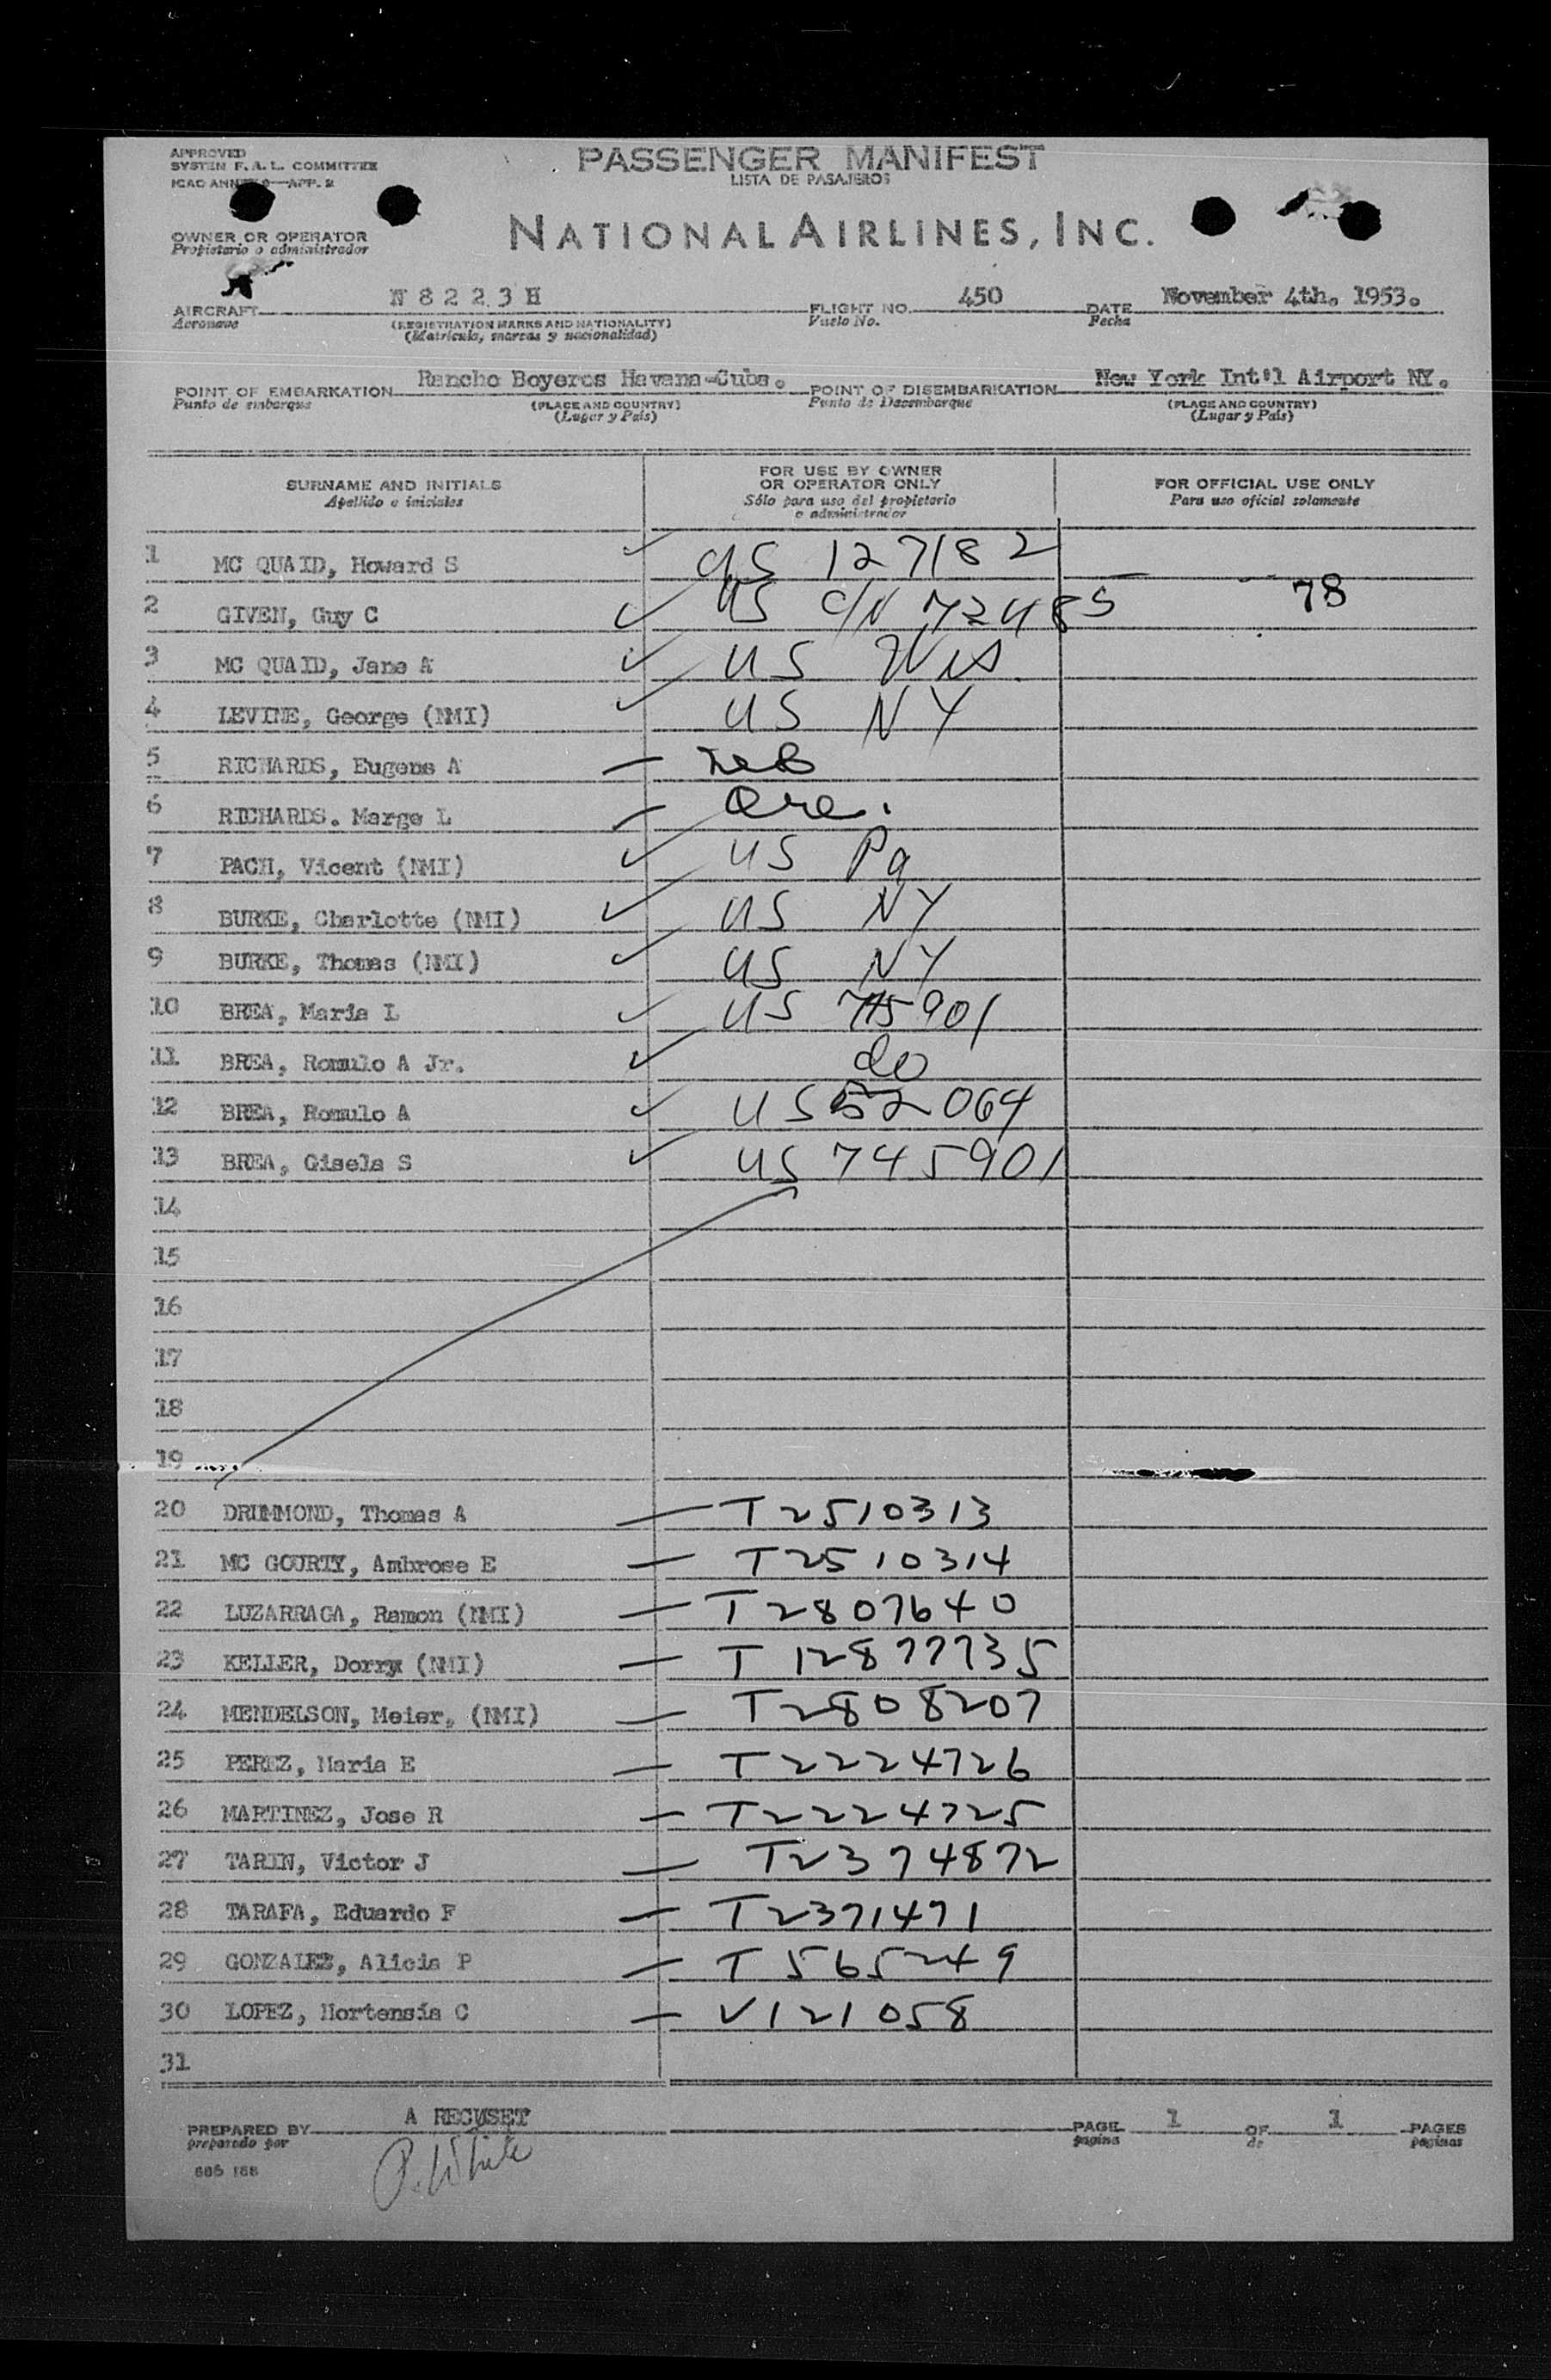 APPROVED
SYSTEM F. A. L. COMMITTEE
ICAO ANNEX 9—APP. 2
PASSENGER MANIFEST
LISTA DE PASAJEROS
NATIONAL AIRLINES, INC.
OWNER OR OPERATOR
Propietario o administrador
AIRCRAFT N 8 2 2 3 H FLIGHT NO. 450 DATE November 4th. 1953.
Aeronave (REGISTRATION MARKS AND NATIONALITY) Vuelo No. Fecha
(Matricula, marcas y nacionalidad)
POINT OF EMBARKATION Rancho Boyeros Havana-Cuba. POINT OF DISEMBARKATION New York Int'l Airport NY.
Punto de embarque (PLACE AND COUNTRY) Punto de Desembarque (PLACE AND COUNTRY)
(Lugar y País) (Lugar y País)
SURNAME AND INITIALS FOR USE BY OWNER OR OPERATOR ONLY FOR OFFICIAL USE ONLY
Apellido e iniciales Sólo para uso del propietario o administrador Para uso oficial solamente
1 MC QUAID, Howard S US 127182
2 GIVEN, Guy C US C/N 72485 78
3 MC QUAID, Jane A US Wis
4 LEVINE, George (NMI) US NY
5 RICHARDS, Eugene A Neb
6 RICHARDS. Marge L Ore.
7 PACH, Vicent (NMI) US Pa
8 BURKE, Charlotte (NMI) US NY
9 BURKE, Thomas (NMI) US NY
10 BREA, Maria L US 745901
11 BREA, Romulo A Jr. do
12 BREA, Romulo A US 52064
13 BREA, Gisela S US 745901
14
15
16
17
18
19
20 DRUMMOND, Thomas A T2510313
21 MC GOURTY, Ambrose E T2510314
22 LUZARRAGA, Ramon (NMI) T2807640
23 KELLER, Dorry (NMI) T12877735
24 MENDELSON, Meier, (NMI) T2808207
25 PEREZ, Maria E T2224726
26 MARTINEZ, Jose R T2224725
27 TARIN, Victor J T2374872
28 TARAFA, Eduardo F T2371471
29 GONZALEZ, Alicia P T565249
30 LOPEZ, Hortensia C V121058
31
PREPARED BY A RECUSET PAGE 1 OF 1 PAGES
preparado por pagina de paginas
P. White